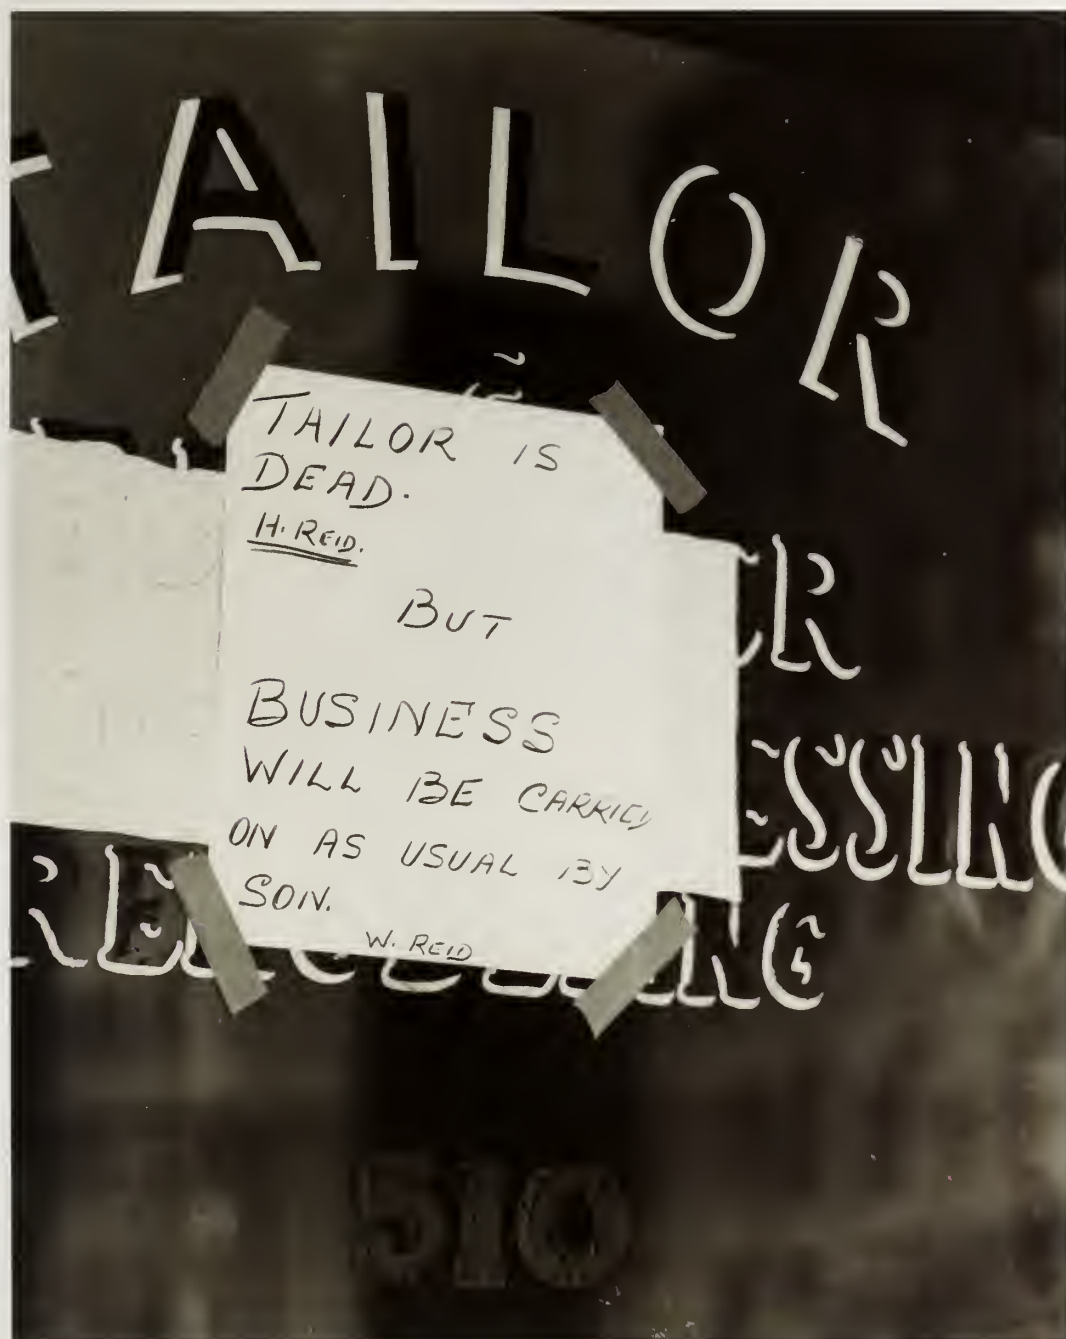 TAILOR
TAILOR IS
DEAD.
H. REID.
BUT
BUSINESS
WILL BE CARRIED
ON AS USUAL BY
SON.
W. REID
510